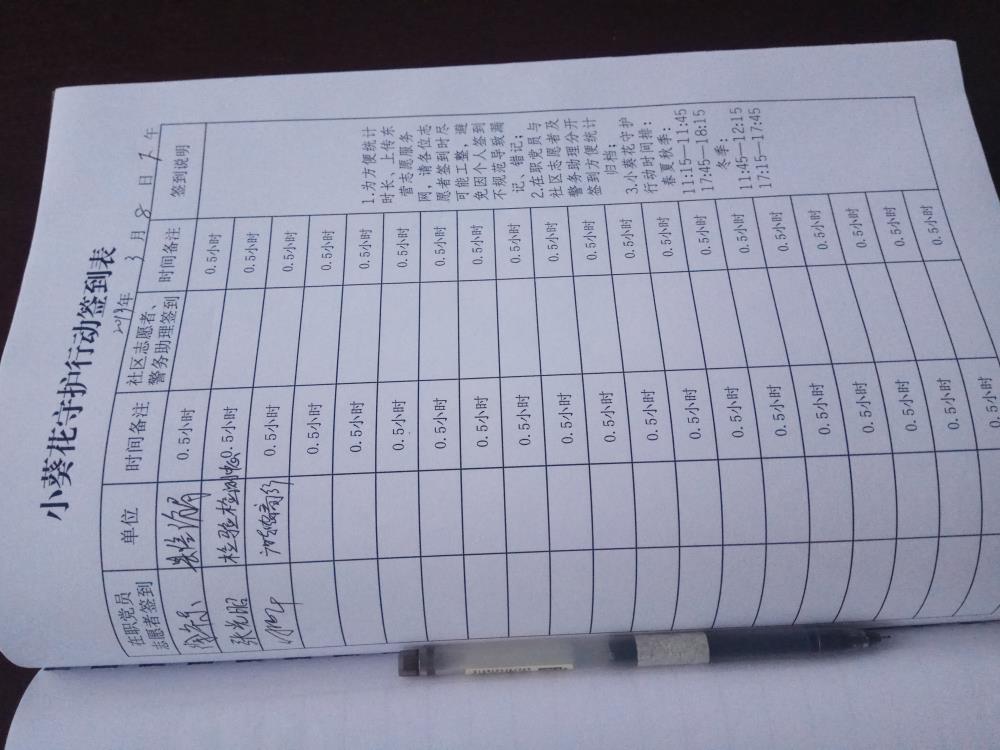 小葵花守护行动签到表
3 月 8 日 7 年
在职党员
志愿者签到
单位
时间备注
社区志愿者、
警务助理签到
时间备注
签到说明
0.5小时
0.5小时
张光明
检验检测中心
0.5小时
0.5小时
0.5小时
0.5小时
0.5小时
0.5小时
0.5小时
0.5小时
0.5小时
0.5小时
0.5小时
0.5小时
0.5小时
0.5小时
0.5小时
0.5小时
0.5小时
0.5小时
0.5小时
0.5小时
0.5小时
0.5小时
0.5小时
0.5小时
0.5小时
0.5小时
0.5小时
0.5小时
0.5小时
0.5小时
0.5小时
0.5小时
0.5小时
0.5小时
0.5小时
0.5小时
0.5小时
0.5小时
1.为方便统计
时长、上传东
营志愿服务
网，请各位志
愿者签到时尽
可能工整，避
免因个人签到
不规范导致漏
记、错记；
2.在职党员与
社区志愿者及
警务助理分开
签到方便统计
归档；
3.小葵花守护
行动时间排：
春夏秋季：
11:15—11:45
17:45—18:15
冬季：
11:45—12:15
17:15—17:45